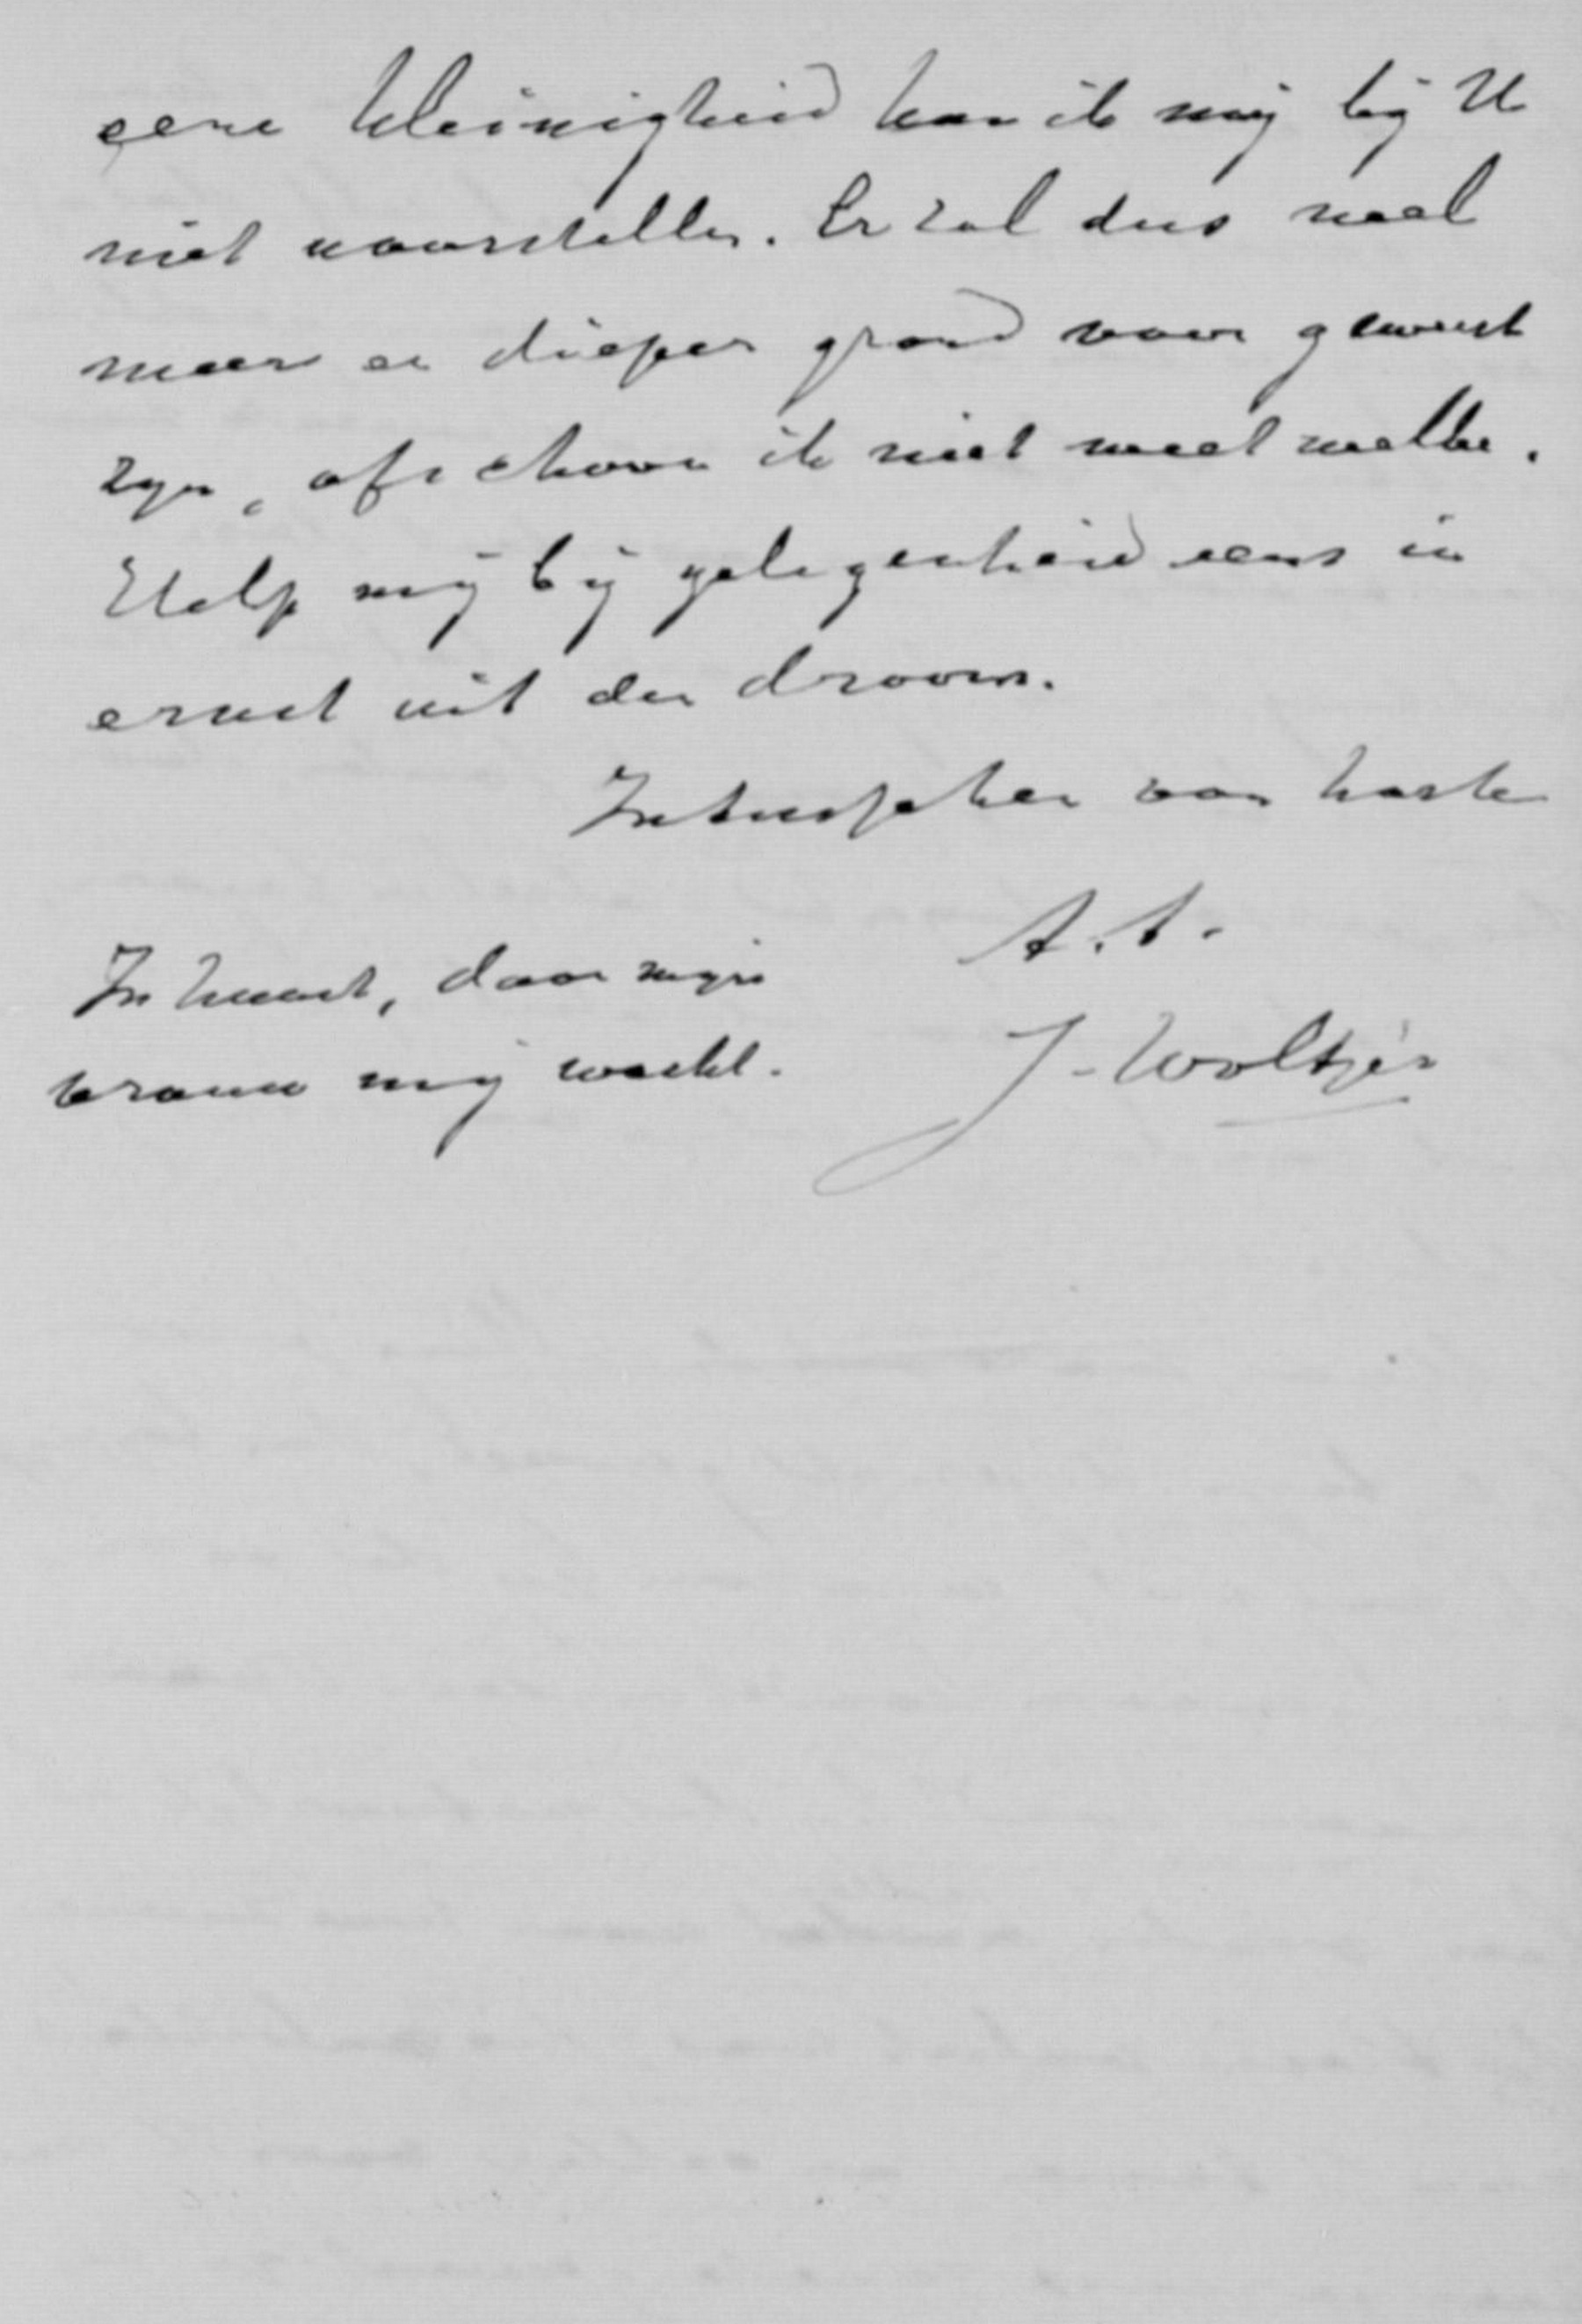 eene kleinigheid kan ik mij bij U
niet voorstellen. Er zal dus veel
meer en dieper grond voor geweest
zijn, ofschoon ik niet weet welke.
Help mij bij gelegenheid eens in
ernst uit den droom.
Intusschen van harte
t.t.
In haast, daar mijn
vrouw mij wacht.
J. Woltjer